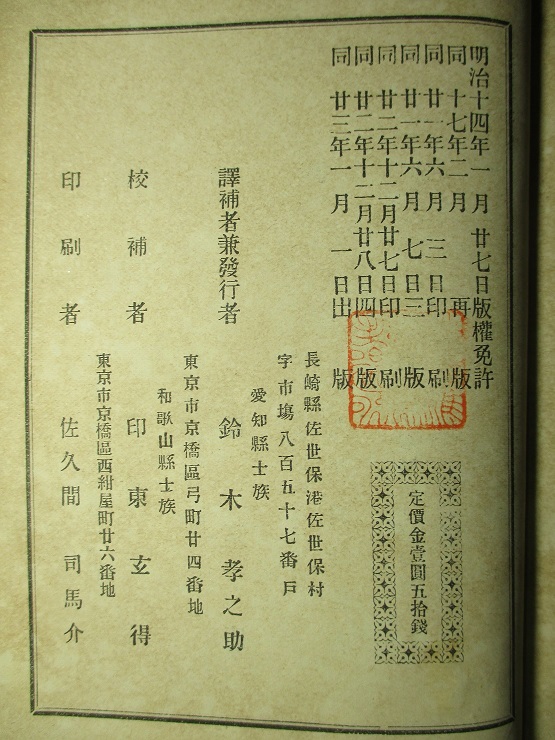 明治十四年一月廿七日版權免許
同十七年二月再版
同廿一年六月三日印刷
同廿一年六月七日三版
同廿二年十二月廿七日印刷
同廿二年十二月廿八日四版
同廿三年一月一日出版
定價金壹圓五拾錢
長崎縣佐世保港佐世保村
字市塲八百五十七番戶
愛知縣士族
譯補者兼發行者 鈴木孝之助
東京市京橋區弓町廿四番地
和歌山縣士族
校補者 印東玄得
東京市京橋區西紺屋町廿六番地
印刷者 佐久間司馬介